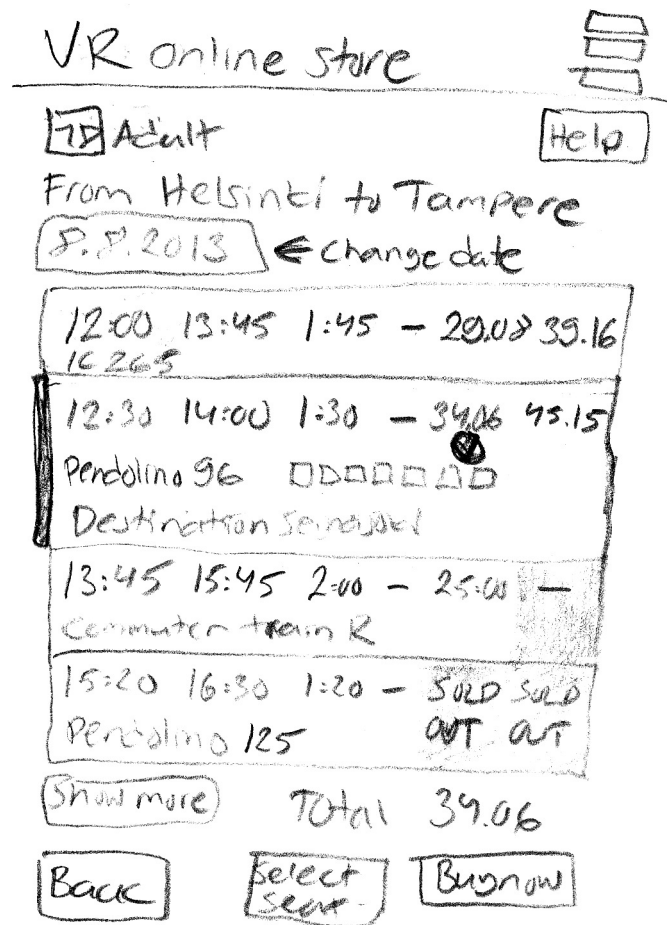 VR online store
Adult
Help
From Helsinki to Tampere
8.8.2013 ← Change date
12:00 13:45 1:45 - 29.08 39.16
IC 265
12:30 14:00 1:30 - 34.06 45.15
Pendolino 96
Destination Seinäjoki
13:45 15:45 2:00 - 25:00 -
Commuter train R
15:20 16:30 1:20 - SOLD SOLD
Pendolino 125 OUT OUT
Show more Total 34.06
Back Select Buy now
seat